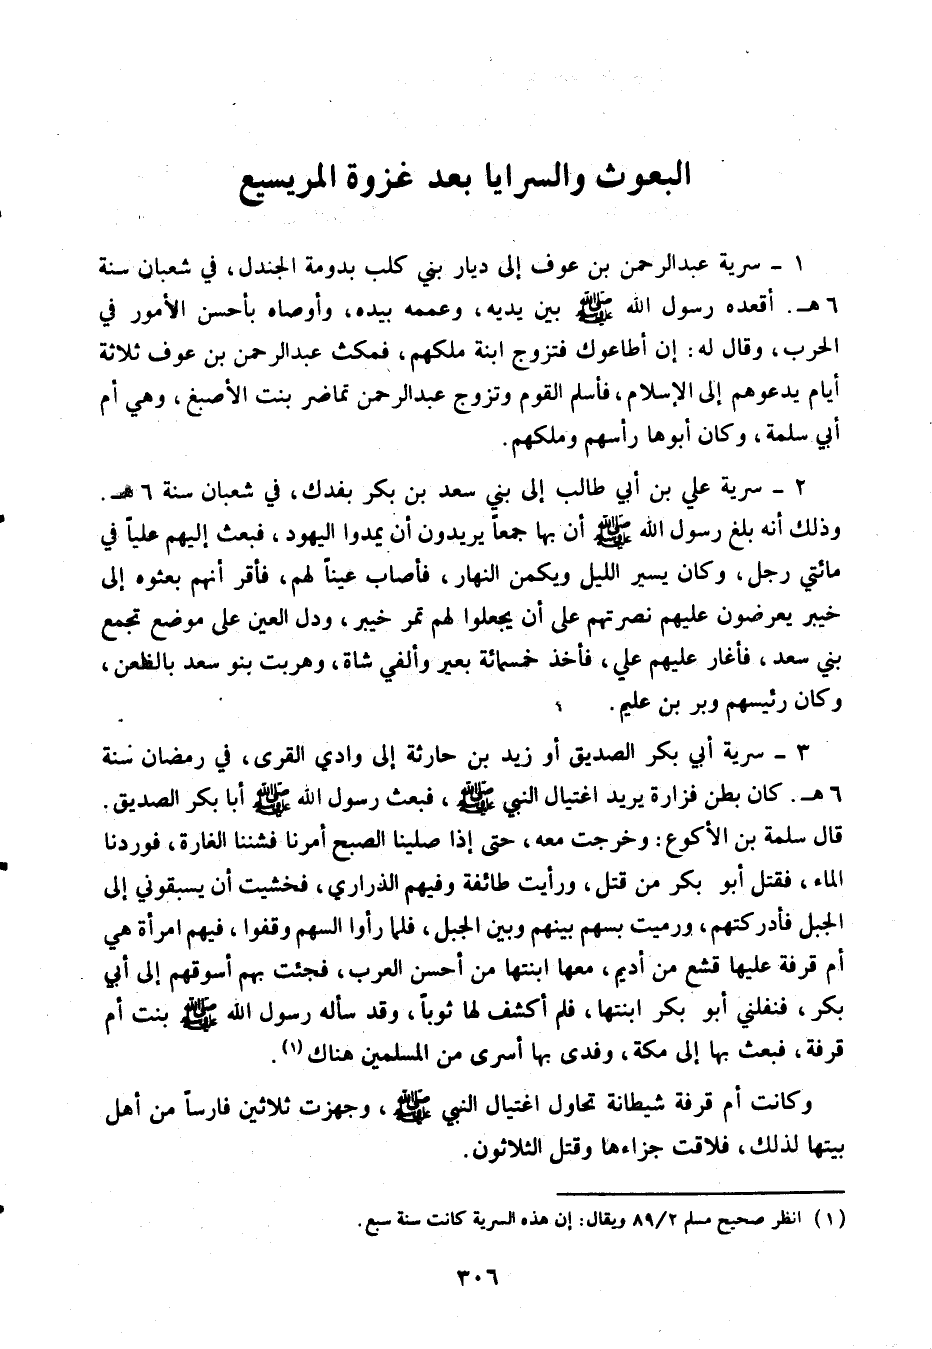 البعوث والسرايا بعد غزوة المريسيع
١ - سرية عبدالرحمن بن عوف إلى ديار بني كلب بدومة الجندل، في شعبان سنة
٦ هـ. أقعده رسول الله ﷺ بين يديه، وعممه بيده، وأوصاه بأحسن الأمور في
الحرب، وقال له: إن أطاعوك فتزوج ابنة ملكهم، فمكث عبدالرحمن بن عوف ثلاثة
أيام يدعوهم إلى الإسلام، فأسلم القوم وتزوج عبدالرحمن تماضر بنت الأصبغ، وهي أم
أبي سلمة، وكان أبوها رأسهم وملكهم.
٢ - سرية علي بن أبي طالب إلى بني سعد بن بكر بفدك، في شعبان سنة ٦ هـ.
وذلك أنه بلغ رسول الله ﷺ أن بها جمعاً يريدون أن يمدوا اليهود، فبعث إليهم علياً في
مائتي رجل، وكان يسير الليل ويكمن النهار، فأصاب عيناً لهم، فأقر أنهم بعثوه إلى
خيبر يعرضون عليهم نصرتهم على أن يجعلوا لهم تمر خيبر، ودل العين على موضع تجمع
بني سعد، فأغار عليهم علي، فأخذ خمسمائة بعير وألفي شاة، وهربت بنو سعد بالظعن،
وكان رئيسهم وبر بن عليم.
٣ - سرية أبي بكر الصديق أو زيد بن حارثة إلى وادي القرى، في رمضان سنة
٦ هـ. كان بطن فزارة يريد اغتيال النبي ﷺ، فبعث رسول الله ﷺ أبا بكر الصديق.
قال سلمة بن الأكوع: وخرجت معه، حتى إذا صلينا الصبح أمرنا فشننا الغارة، فوردنا
الماء، فقتل أبو بكر من قتل، ورأيت طائفة وفيهم الذراري، فخشيت أن يسبقوني إلى
الجبل فأدركتهم، ورميت بسهم بينهم وبين الجبل، فلما رأوا السهم وقفوا، فيهم امرأة هي
أم قرفة عليها قشع من أديم، معها ابنتها من أحسن العرب، فجئت بهم أسوقهم إلى أبي
بكر، فنفلني أبو بكر ابنتها، فلم أكشف لها ثوباً، وقد سأله رسول الله ﷺ بنت أم
قرفة، فبعث بها إلى مكة، وفدى بها أسرى من المسلمين هناك (١).
وكانت أم قرفة شيطانة تحاول اغتيال النبي ﷺ، وجهزت ثلاثين فارساً من أهل
بيتها لذلك، فلاقت جزاءها وقتل الثلاثون.
(١) انظر صحيح مسلم ٨٩/٢ ويقال: إن هذه السرية كانت سنة سبع.
٣٠٦